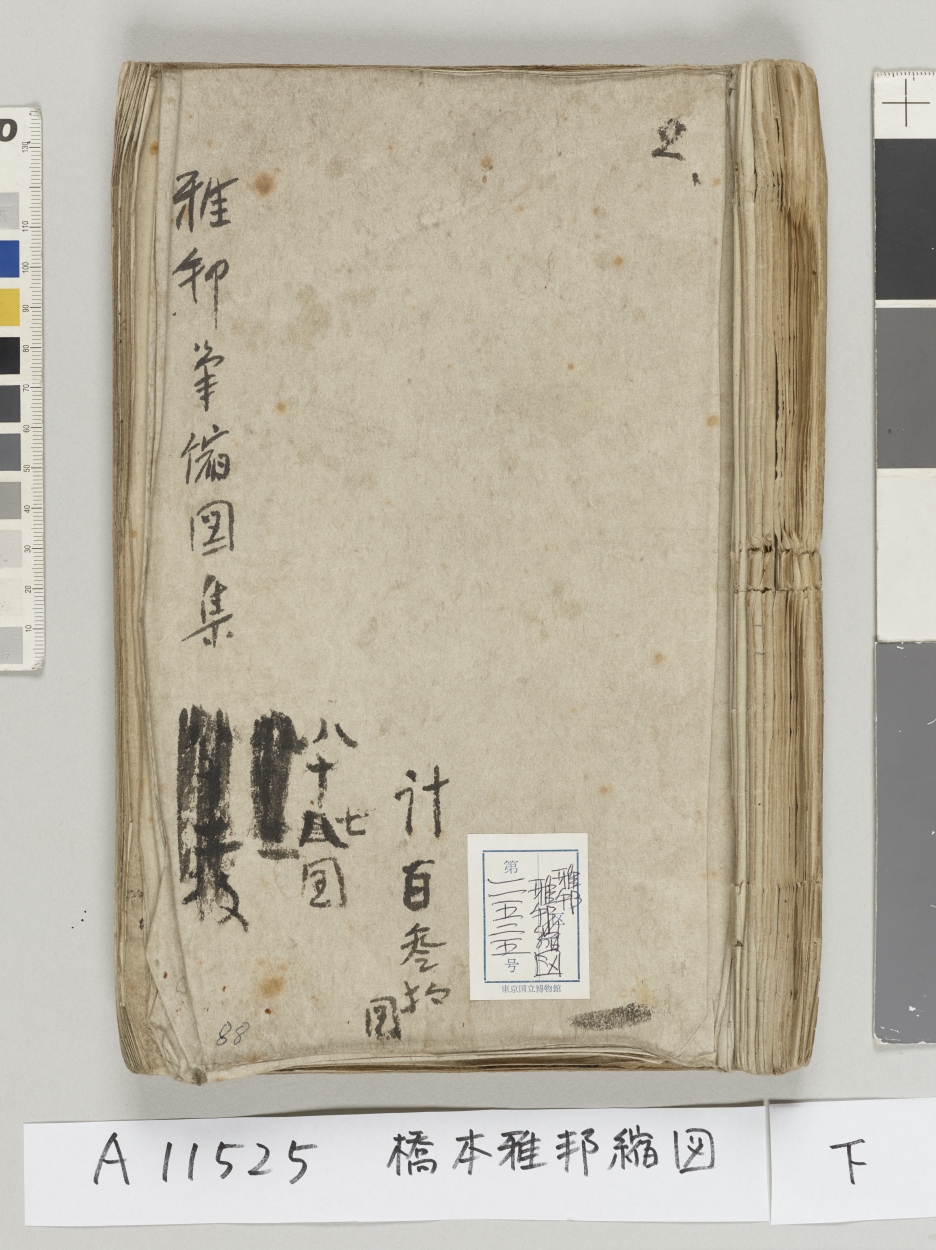 2
雅邦筆縮図集
八十七図
計百叁拾
図
88
第
一一五二五
号
雅邦
雅邦縮図
東京国立博物館
A 11525 橋本雅邦縮図 下